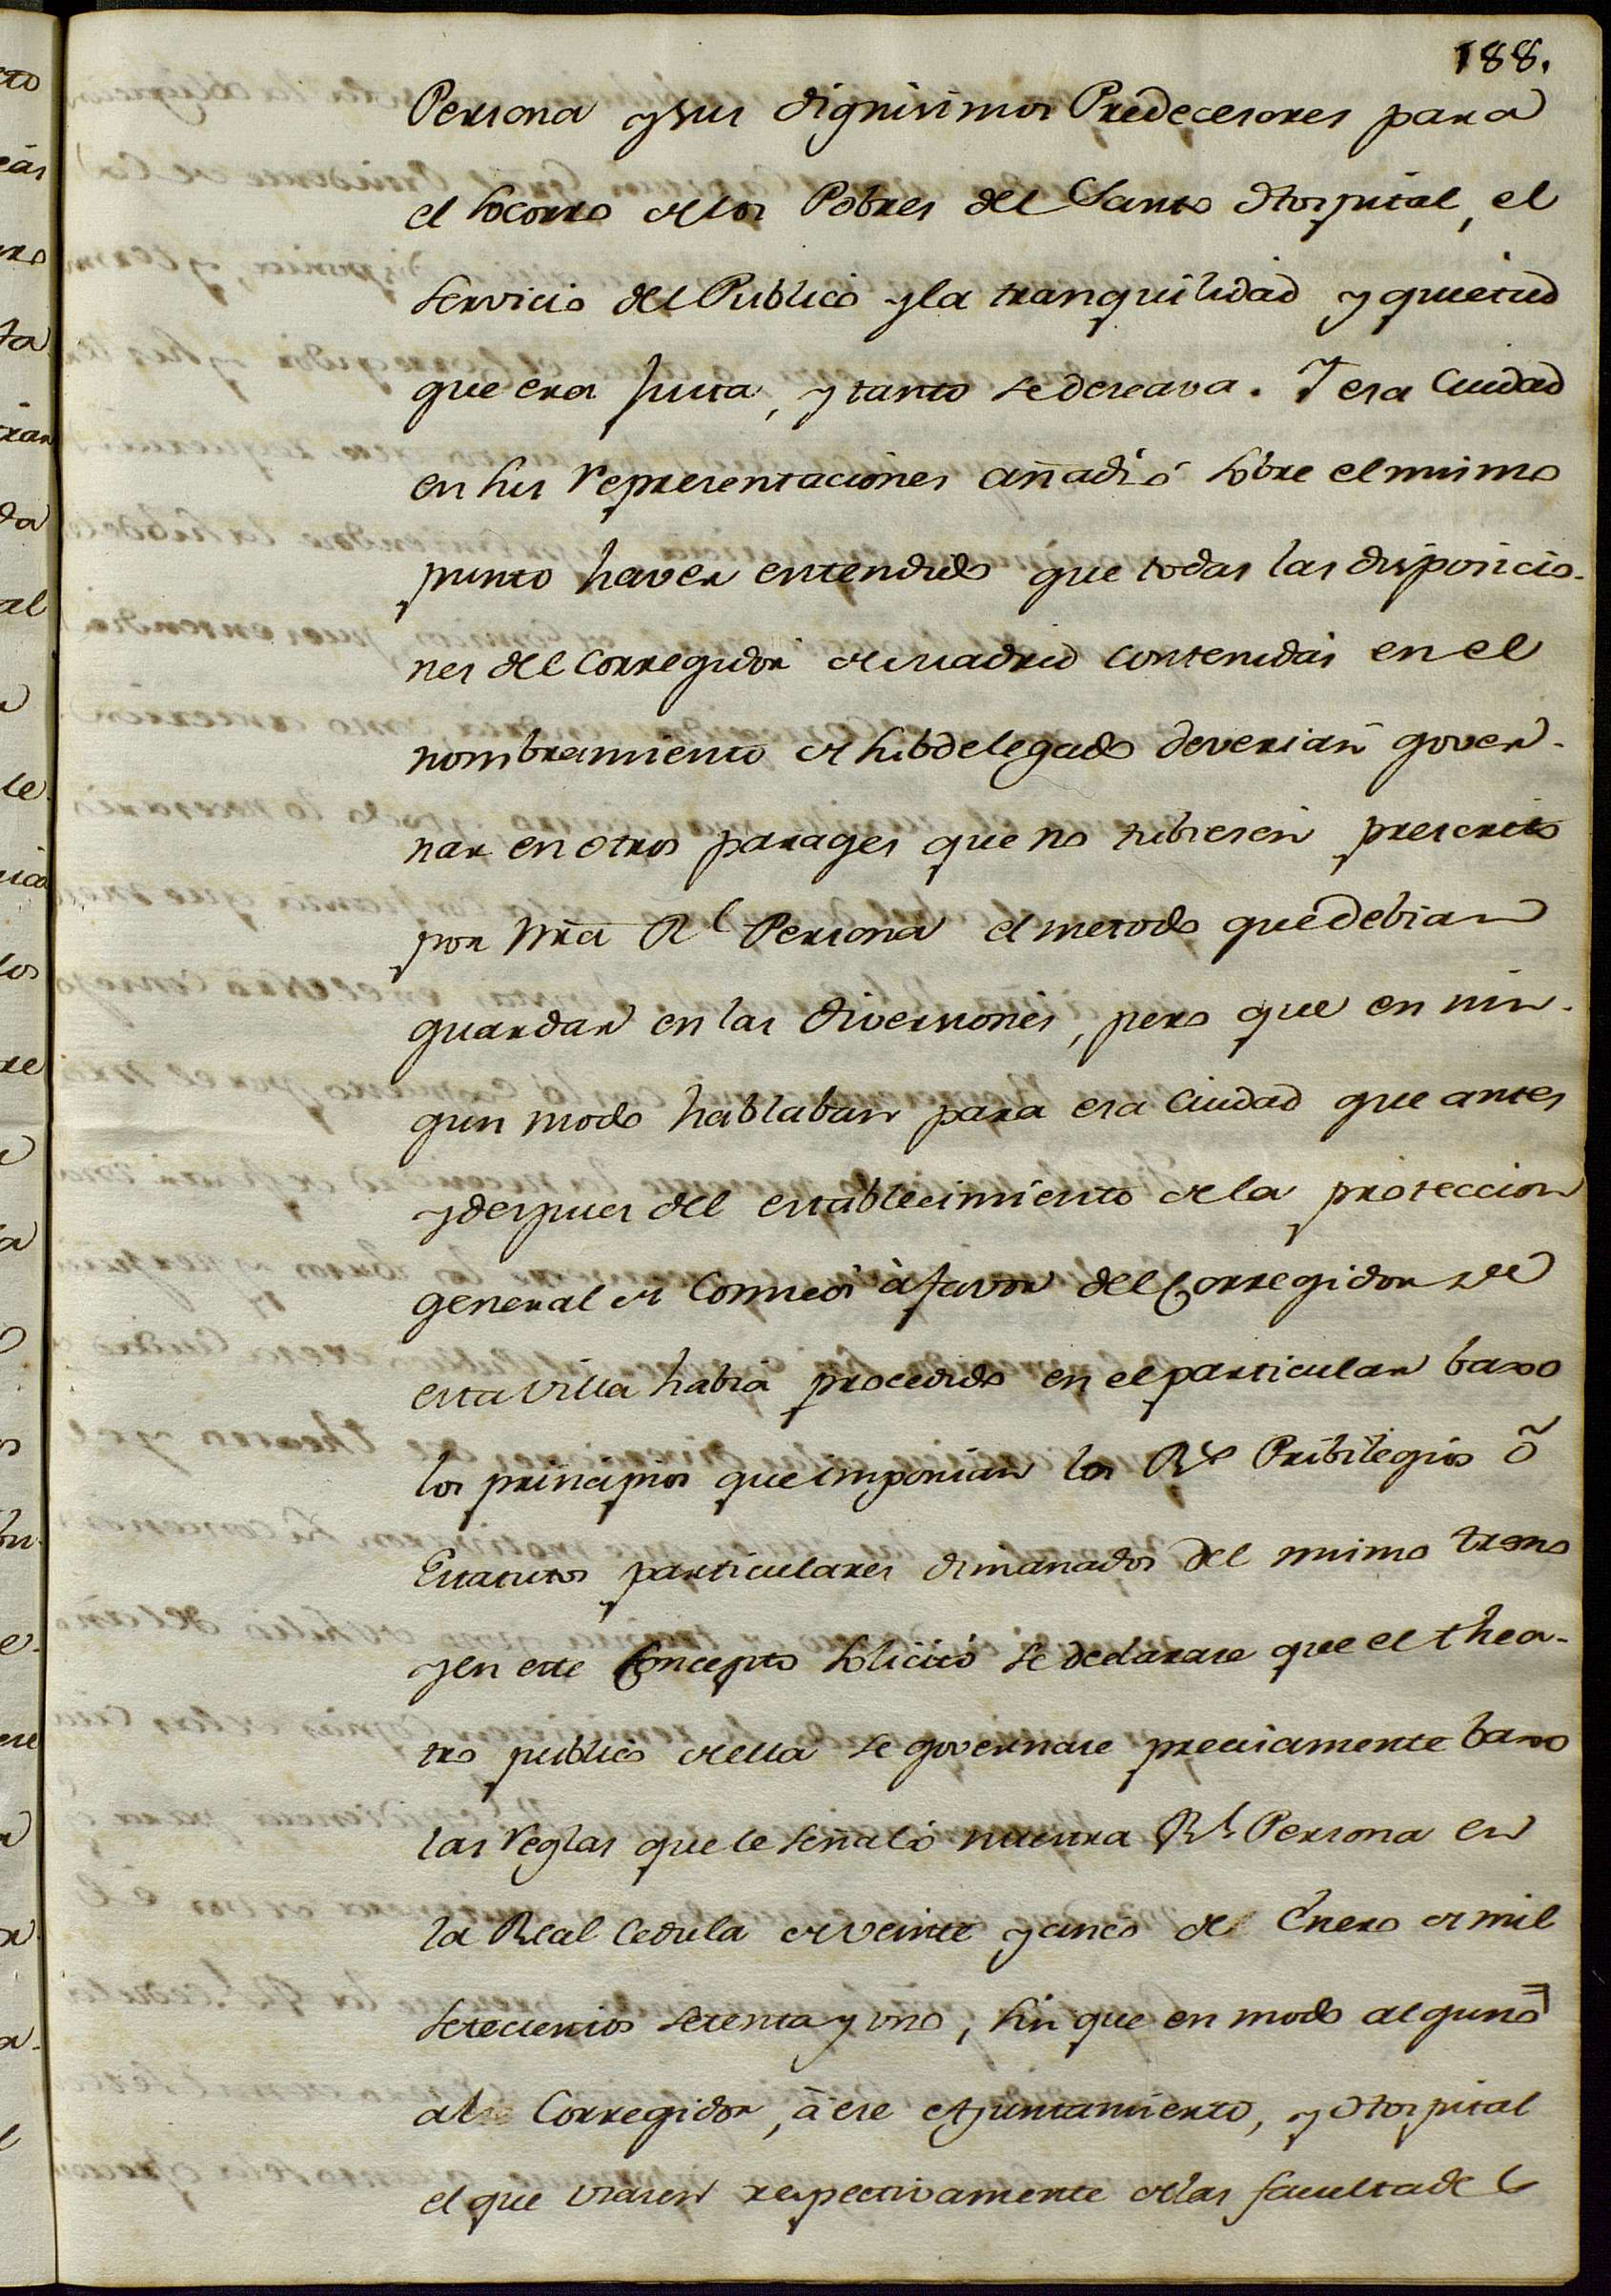 188.
Persona y sus dignisimos Predecesores para
el socorro de los Pobres del Santo Hospital, el
servicio del Publico y la tranquilidad y quietud
que era justa, y tanto se deseava. Y esa Ciudad
en sus representaciones añadió sobre el mismo
punto haver entendido que todas las disposicio-
nes del Corregidor de Madrid contenidas en el
nombramiento de subdelegado deverian gover-
nar en otros parages que no tubiesen prescrito
por nrã Rl Persona el metodo que debian
guardar en las diversiones, pero que en nin-
gun modo hablaban para esa Ciudad que antes
y despues del establecimiento de la proteccion
general de Comicos à favor del Corregidor de
esta villa habia procedido en el particular baxo
los principios que imponian los Rs Pribilegios õ
Estatutos particulares dimanados del mismo trono
y en este concepto solicitó se declarase que el thea-
tro publico de ella se governase precisamente baxo
las reglas que le señaló nuestra Rl Persona en
la Real Cedula de veinte y cinco de Enero de mil
setecientos setenta y uno, sin que en modo alguno
al Corregidor, à ese Ayuntamiento, y Hospital
el que usasen respectivamente de las facultades